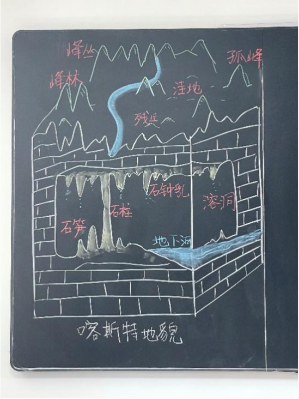 峰丛
孤峰
峰林
洼地
残丘
石钟乳
石柱
溶洞
石笋
地下河
喀斯特地貌